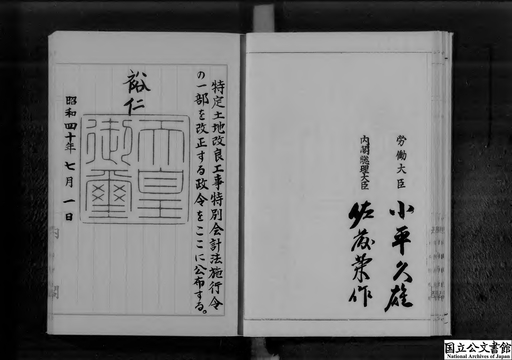 特定土地改良工事特別会計法施行令
の一部を改正する政令をここに公布する。
裕仁
天皇
御璽
昭和四十年七月一日
労働大臣 小平久雄
内閣総理大臣 佐藤栄作
国立公文書館
National Archives of Japan